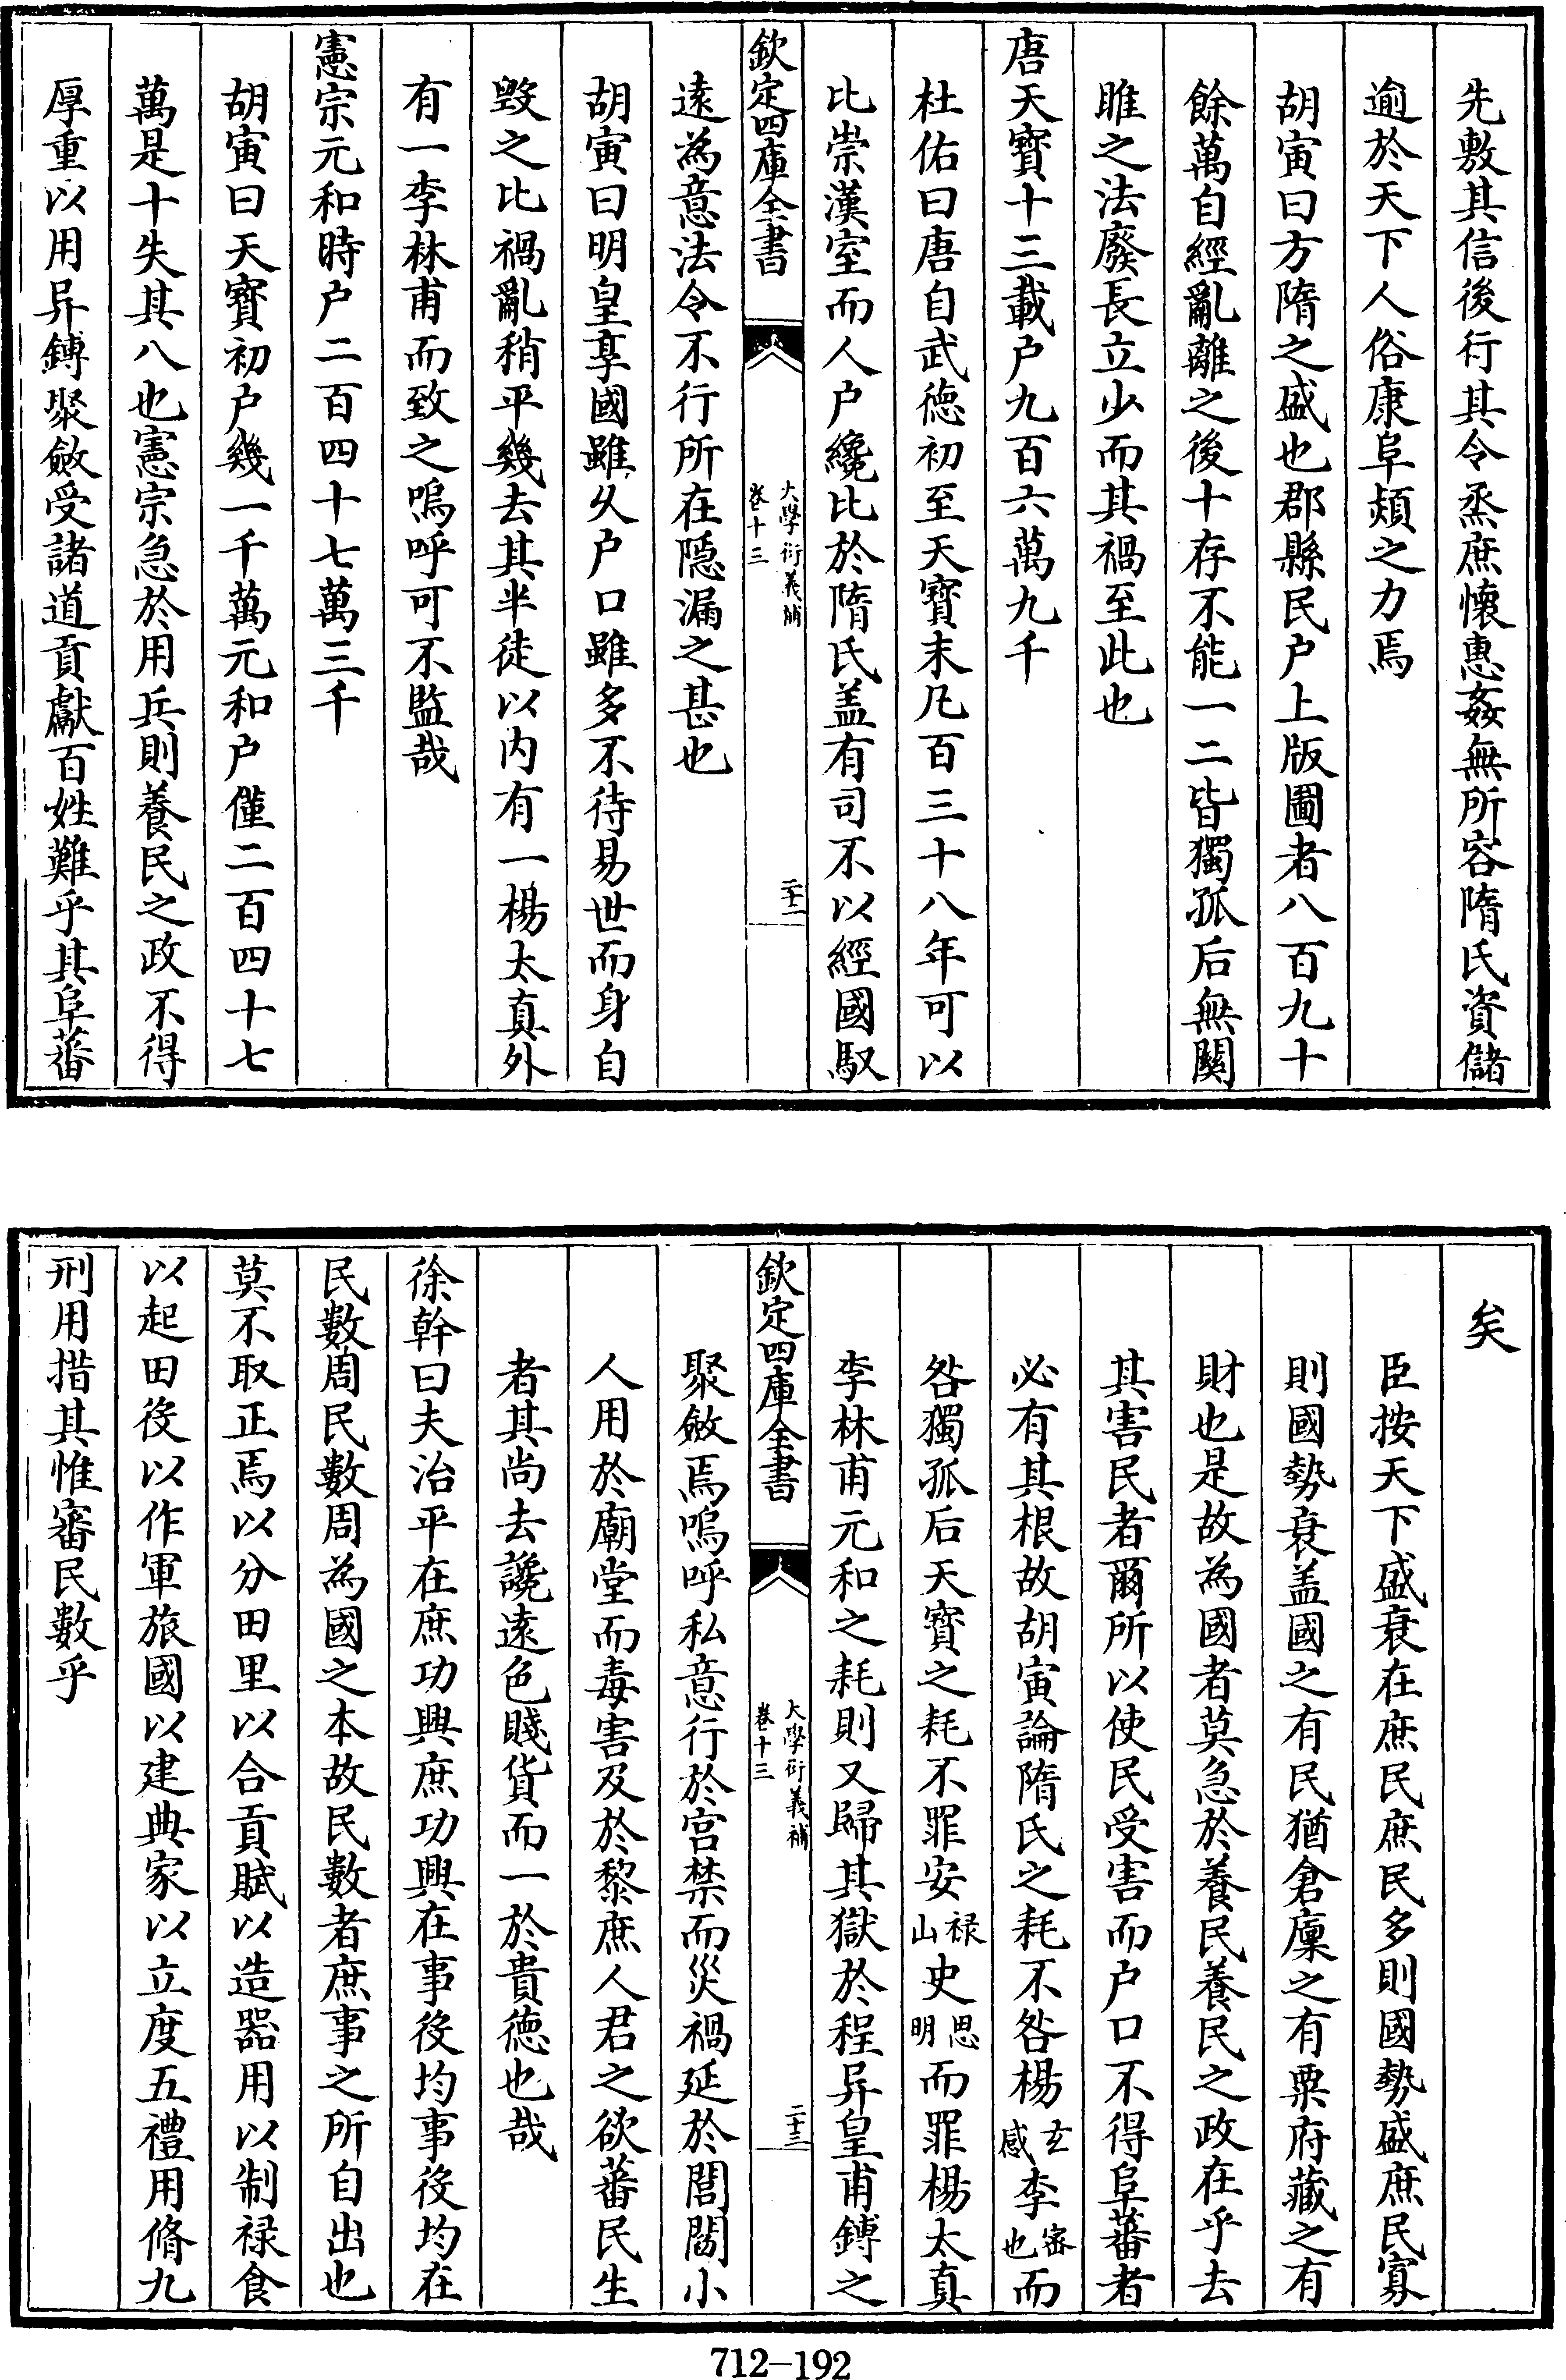 先敷其信後行其令烝庶懷惠姦無所容隋氏資儲
逾於天下人俗康阜熲之力焉
胡寅曰方隋之盛也郡縣民户上版圖者八百九十
餘萬自經亂離之後十存不能一二皆獨孤后無關
雎之法廢長立少而其禍至此也
唐天寳十三載户九百六萬九千
杜佑曰唐自武徳初至天寳末凡百三十八年可以
比崇漢室而人户纔比於隋氏盖有司不以經國馭
逺為意法令不行所在隠漏之甚也
欽定四庫全書
大學衍義補
卷十三
二十二
胡寅曰明皇享國雖久户口雖多不待易世而身自
毁之比禍亂稍平幾去其半徒以内有一楊太真外
有一李林甫而致之嗚呼可不監哉
憲宗元和時户二百四十七萬三千
胡寅曰天寳初户幾一千萬元和户僅二百四十七
萬是十失其八也憲宗急於用兵則養民之政不得
厚重以用异鎛聚斂受諸道貢獻百姓難乎其阜蕃
矣
臣按天下盛衰在庶民庶民多則國勢盛庶民寡
則國勢衰盖國之有民猶倉廩之有粟府藏之有
財也是故為國者莫急於養民養民之政在乎去
其害民者爾所以使民受害而户口不得阜蕃者
必有其根故胡寅論隋氏之耗不咎楊玄感李密也而
咎獨孤后天寳之耗不罪安禄山史思明而罪楊太真
李林甫元和之耗則又歸其獄於程异皇甫鎛之
欽定四庫全書
大學衍義補
卷十三
二十三
聚斂焉嗚呼私意行於宫禁而災禍延於閭閻小
人用於廟堂而毒害及於黎庶人君之欲蕃民生
者其尚去讒逺色賤貨而一於貴徳也哉
徐幹曰夫治平在庶功興庶功興在事役均事役均在
民數周民數周為國之本故民數者庶事之所自出也
莫不取正焉以分田里以合貢賦以造器用以制禄食
以起田役以作軍旅國以建典家以立度五禮用脩九
刑用措其惟審民數乎
712-192